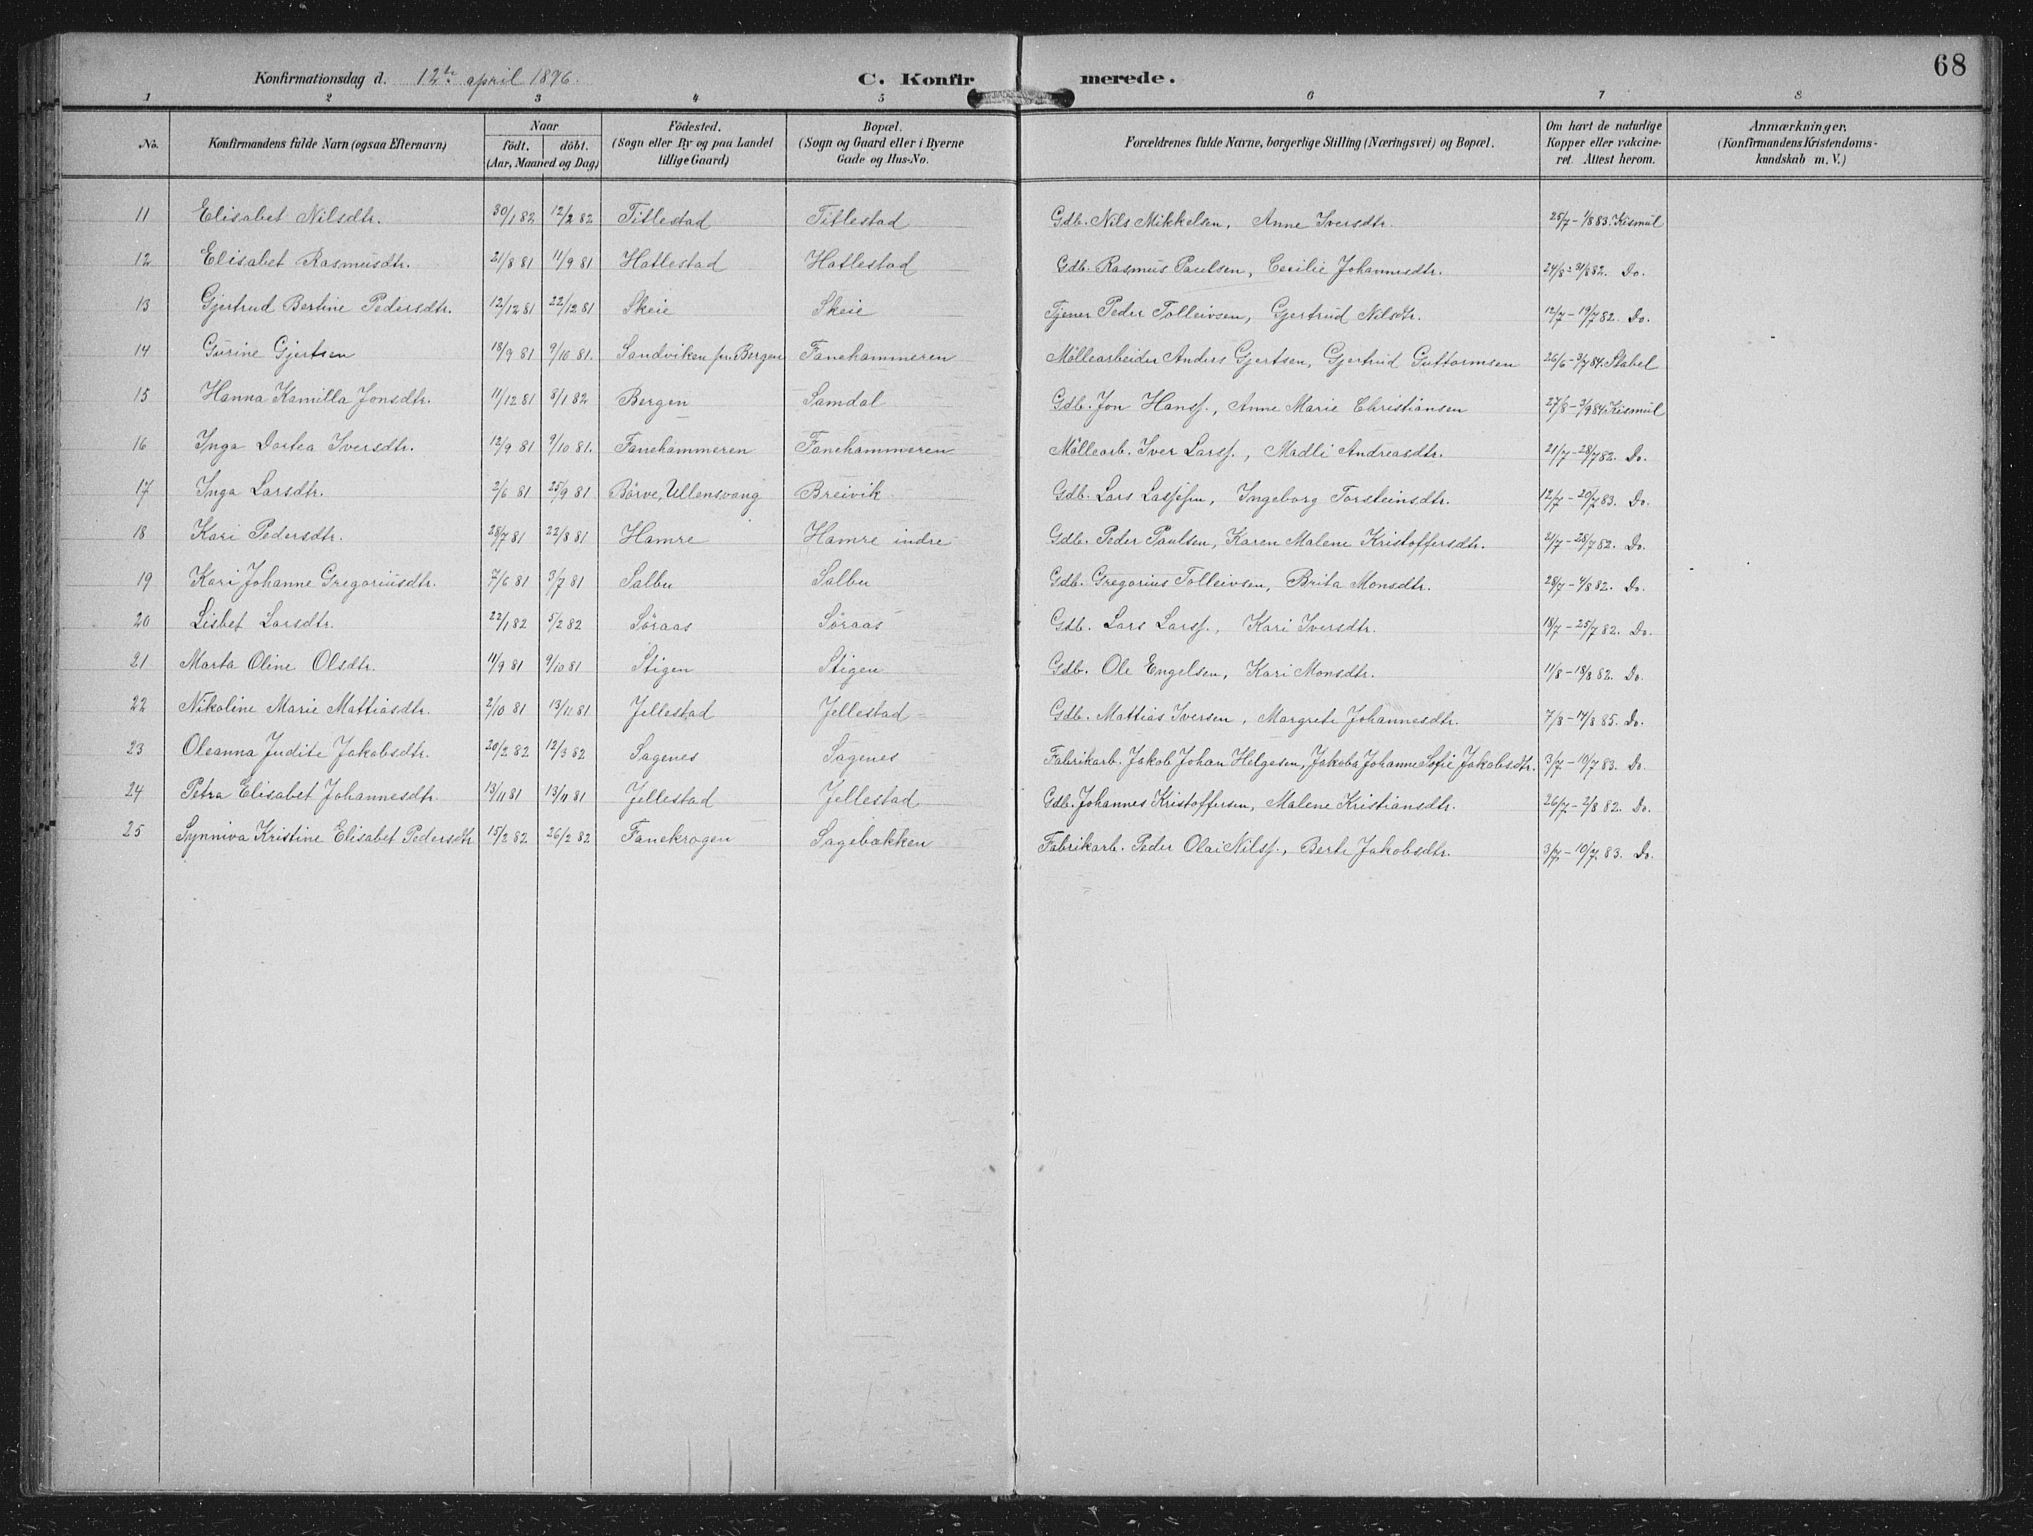 68
Konfirmationsdag d. 12te april 1896. C. Konfirmerede.
1 2 3 4 5 6 7 8
No. Konfirmandens fulde Navn (ogsaa Efternavn) Naar födt. döbt. (Aar, Maaned og Dag) Födested. (Sogn eller By og paa Landet tillige Gaard) Bopæl. (Sogn og Gaard eller i Byerne Gade og Hus-No. Forældrenes fulde Navne, borgerlige Stilling (Næringsvei) og Bopæl. Om havt de naturlige Kopper eller vakcineret. Attest herom. Anmærkninger. (Konfirmandens Kristendomskundskab m. V.)
11 Elisabet Nilsdtr. 30/1 82 12/2 82 Titlestad Titlestad Gdb. Nils Mikkelsen, Anne Iversdtr. 25/7 - 1/8 83. Kismul
12 Elisabet Rasmusdtr. 21/8 81 11/9 81 Hatlestad Hatlestad Gdb. Rasmus Paulsen, Cecilie Johannesdtr. 24/8 - 31/8 82. Do.
13 Gjertrud Bertine Pedersdtr. 12/12 81 22/12 81 Skeie Skeie Tjener Peder Tolleivsen, Gjertrud Nilsdtr. 12/7 - 19/7 82. Do.
14 Gurine Gjertsen 18/9 81 9/10 81. Sandviken pr. Bergen Fanehammeren Möllearbeider Anders Gjertsen, Gjertrud Guttormsen 26/6 - 3/7 84. Stabel
15 Hanna Kamilla Jonsdtr. 11/12 81 8/1 82 Bergen Samdal Gdb. Jon Hansf., Anne Marie Christiansen 27/8 - 3/9 84. Kismul
16 Inga Dortea Iversdtr. 12/9 81 9/10 81. Fanehammeren Fanehammeren Möllearb. Iver Larsf., Madli Andreasdtr. 21/7 - 28/7 82. Do.
17 Inga Larsdtr. 2/6 81 25/9 81 Börve, Ullensvang Breivik Gdb. Lars Lassesen, Ingeborg Torsteinsdtr. 12/7 - 20/7 83. Do.
18 Kari Pedersdtr. 28/7 81 22/8 81 Hamre Hamre indre Gdb. Peder Paulsen, Karen Malene Kristoffersdtr. 21/7 - 28/7 82. Do.
19 Kari Johanne Gregoriusdtr. 7/6 81 3/7 81 Salbu Salbu Gdb. Gregorius Tolleivsen, Brita Monsdtr. 28/7 - 4/8 82. Do.
20 Lisbet Larsdtr. 22/1 82 5/2 82 Söraas Söraas Gdb. Lars Larsf., Kari Iversdtr. 18/7 - 25/7 82. Do.
21 Marta Oline Olsdtr. 11/9 81 9/10 81 Stigen Stigen Gdb. Ole Engelsen, Kari Monsdtr. 11/8 - 18/8 82. Do.
22 Nikoline Marie Mattiasdtr. 2/10 81 13/11 81 Jellestad Jellestad Gdb. Mattias Iversen, Margrete Johannesdtr. 7/8 - 14/8 85. Do.
23 Oleanna Judite Jakobsdtr. 20/2 82 12/3 82 Sagenes Sagenes Fabrikarb. Jakob Johan Helgesen, Jakoba Johanne Sofie Jakobsdtr. 3/7 - 10/7 83. Do.
24 Petra Elisabet Johannesdtr. 13/11 81 13/11 81 Jellestad Jellestad Gdb. Johannes Kristoffersen, Malene Kristiansdtr. 26/7 - 2/8 82. Do.
25 Synniva Kristine Elisabet Pedersdtr 15/2 82 26/2 82 Fanekrogen Sagebækken Fabrikarb. Peder Olai Nilsf., Berte Jakobsdtr. 3/7 - 10/7 83. Do.